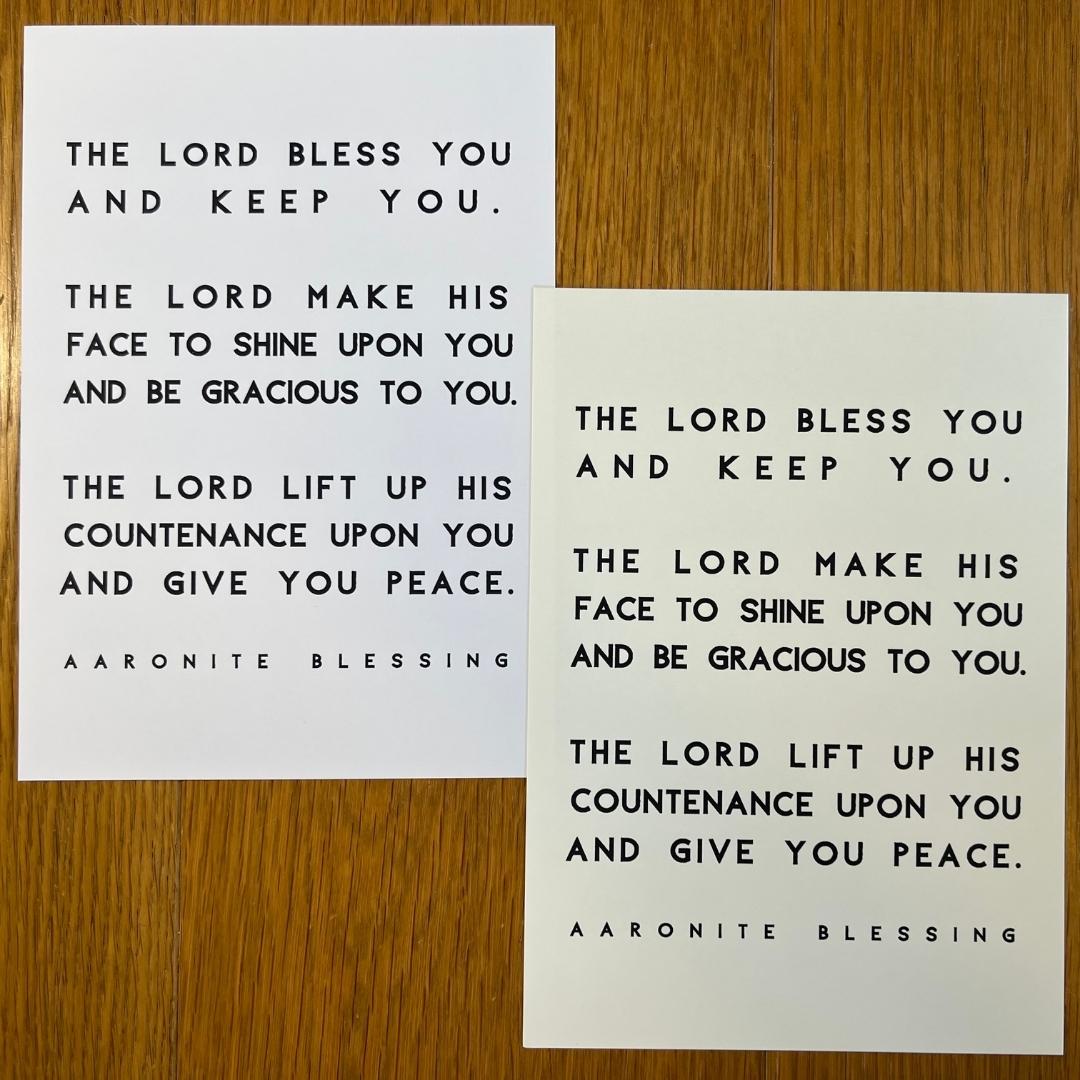 THE LORD BLESS YOU
AND KEEP YOU.
THE LORD MAKE HIS
FACE TO SHINE UPON YOU
AND BE GRACIOUS TO YOU.
THE LORD LIFT UP HIS
COUNTENANCE UPON YOU
AND GIVE YOU PEACE.
AARONITE BLESSING
THE LORD BLESS YOU
AND KEEP YOU.
THE LORD MAKE HIS
FACE TO SHINE UPON YOU
AND BE GRACIOUS TO YOU.
THE LORD LIFT UP HIS
COUNTENANCE UPON YOU
AND GIVE YOU PEACE.
AARONITE BLESSING